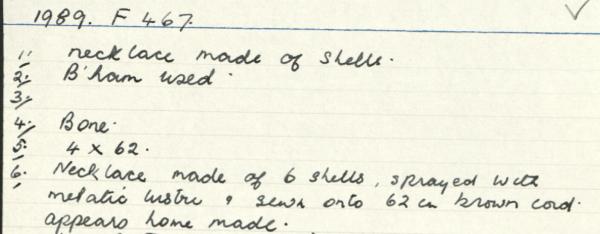 1989. F 467.
1. necklace made of shells.
2. B'ham used.
3.
4. Bone.
5. 4 x 62.
6. Necklace made of 6 shells, sprayed with
melatic lustre & sewn onto 62 cm brown cord.
appears home made.